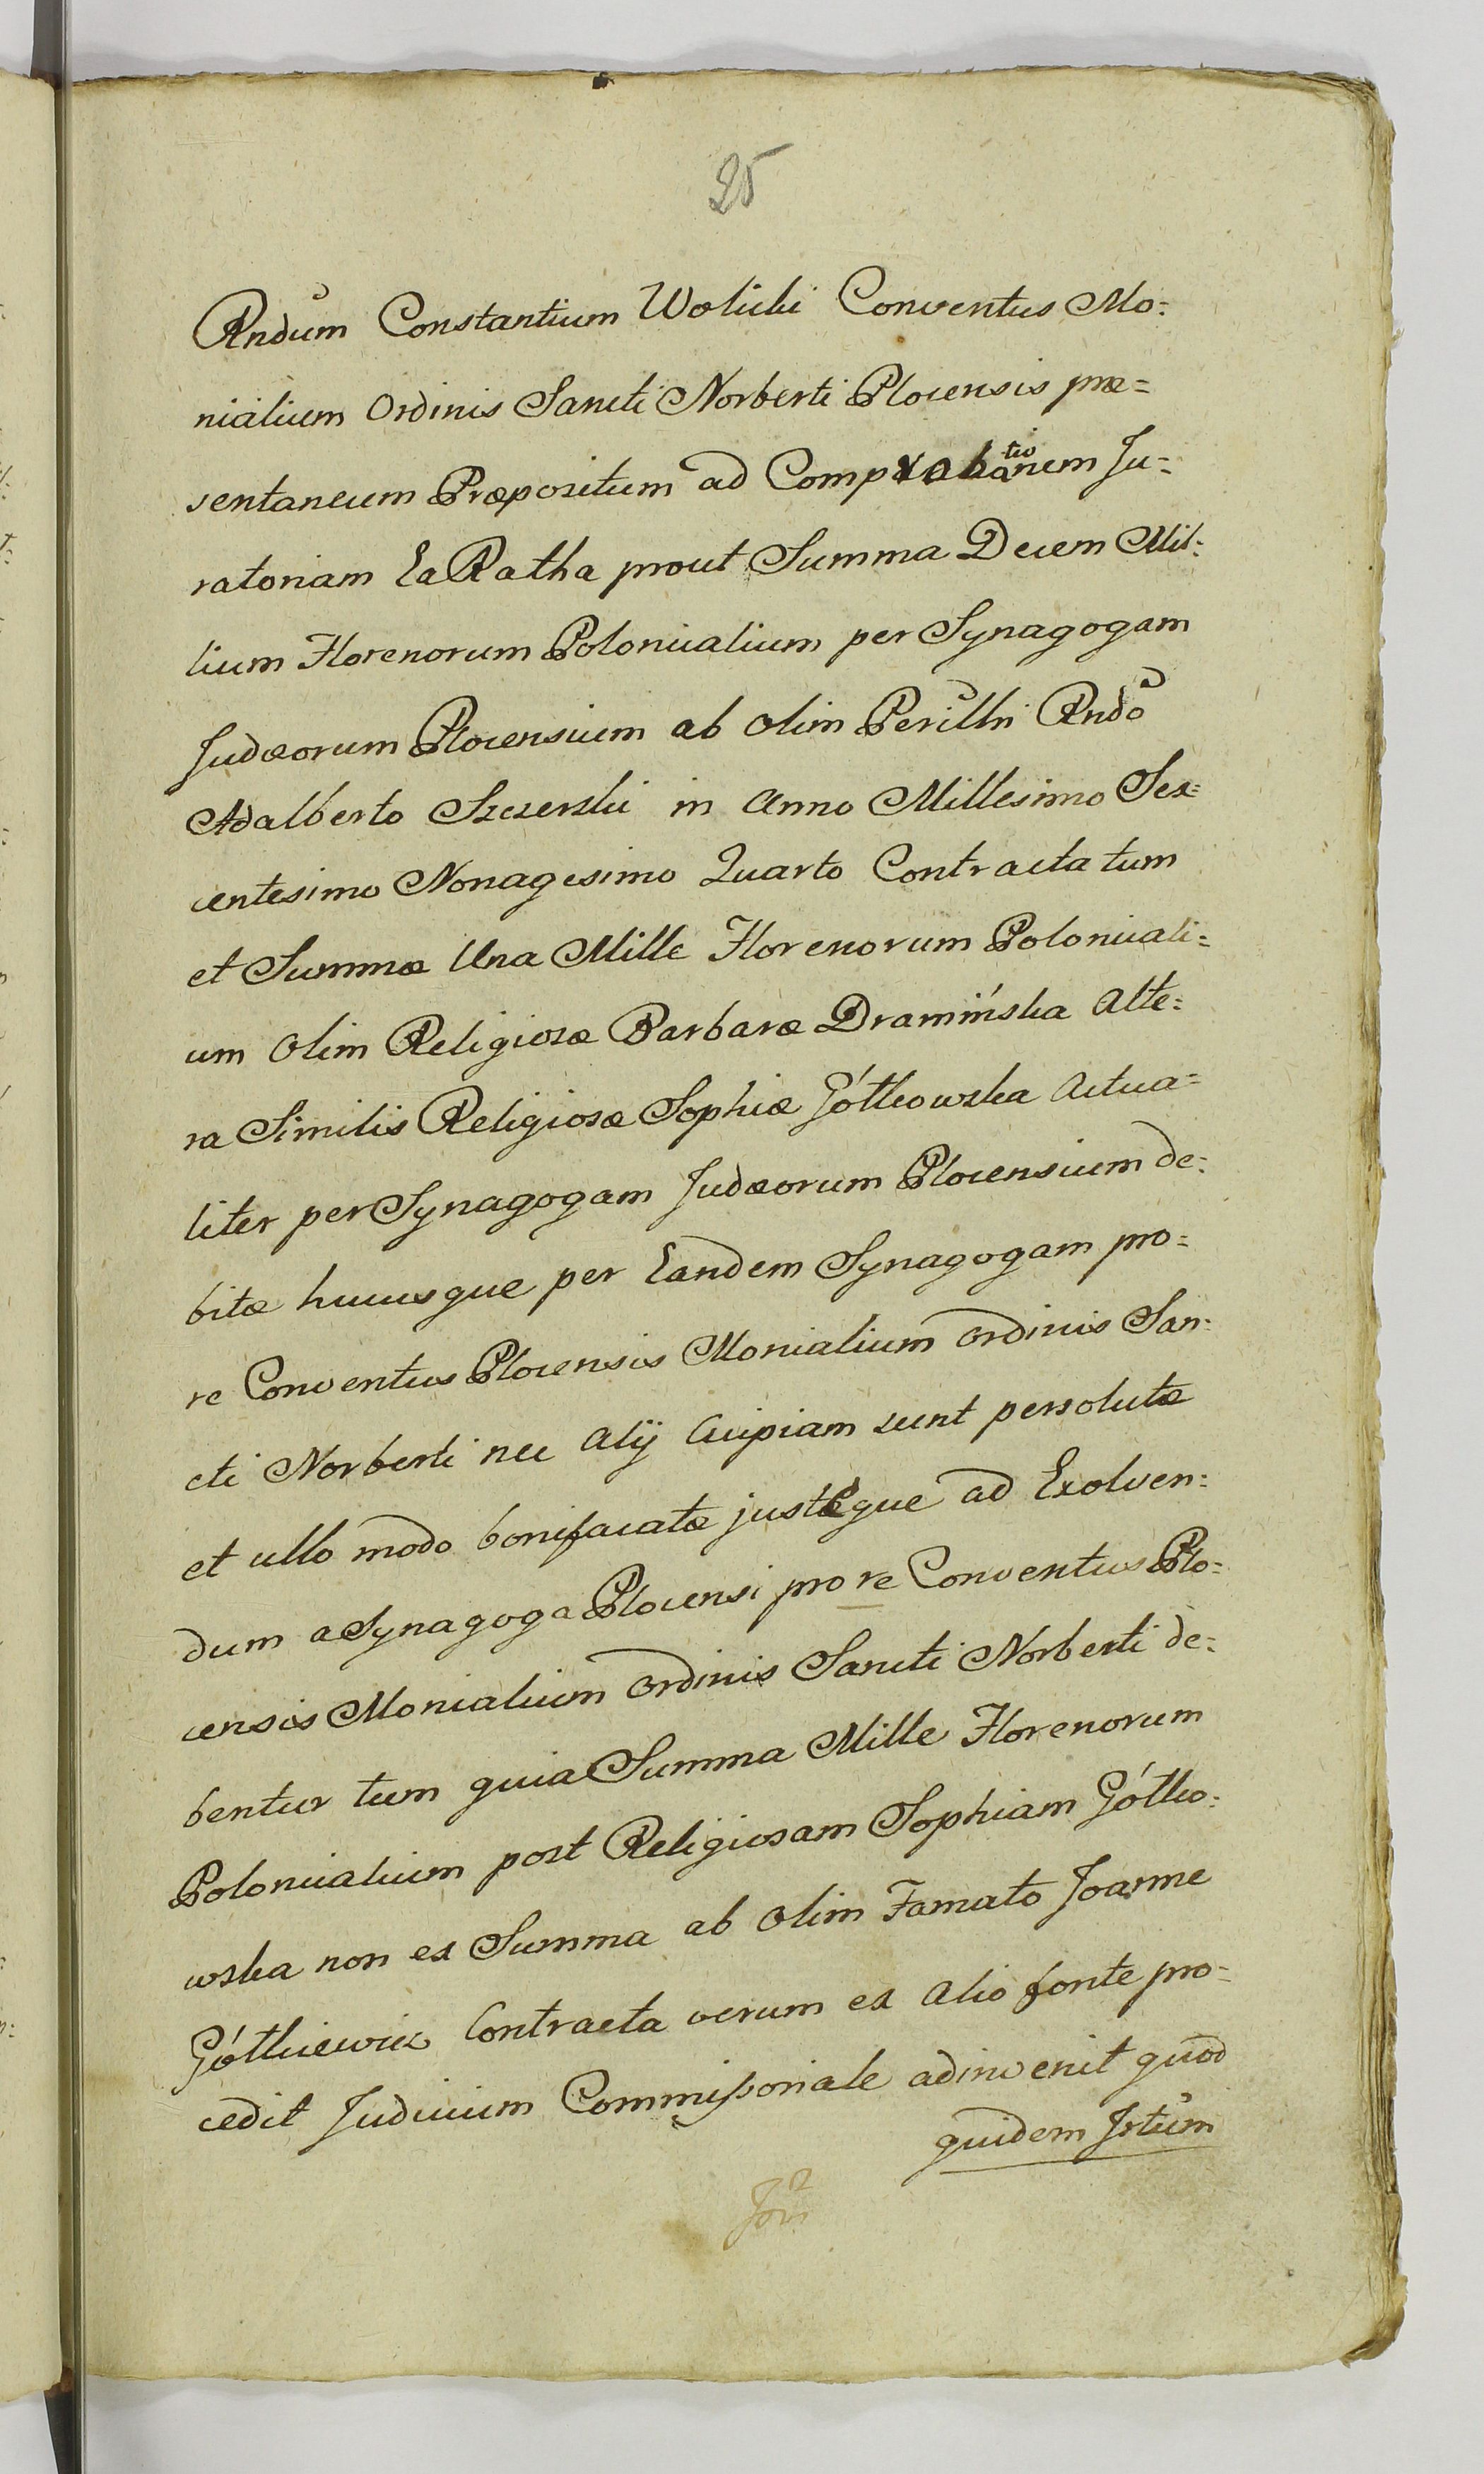 25
Rndum Constantium Wolicki Conventus Mo=
nialium Ordinis Sancti Norberti Plocensis præ=
sentaneum Præpositum ad Comprobationem Ju=
ratoriam Ea Ratha prout Summa Decem Mil=
lium Florenorum Polonicalium per Synagogam
Judæorum Plocensium ab olim Perilln Rndo
Adalberto Szczerski in Anno Millesimo Sex=
centesimo Nonagesimo Quarto Contractatum
et Summæ Una Mille Florenorum Polonicali=
um Olim Religiosæ Barbaræ Dramińska Alte=
ra Similis Religiosæ Sophiæ Gótkowska Actua=
liter per Synagogam Judæorum Plocensium de=
bitæ hucusque per Eandem Synagogam pro=
re Conventus Plocensis Monialium Ordinis San=
cti Norberti nec Alij Cuipiam sunt persolutæ
et ullo modo bonifacatæ justéque ad Exolven=
dum a Synagoga Plocensi pro re Conventus Plo=
censis Monialium Ordinis Sancti Norberti de=
bentur tum quia Summa Mille Florenorum
Polonicalium post Religiosam Sophiam Gótko=
wska non ex Summa ab olim Famato Joanne
Gótkiewicz Contracta verum ex alio fonte pro=
cedit Judicium Commissoriale adinvenit quod
quidem Jstum